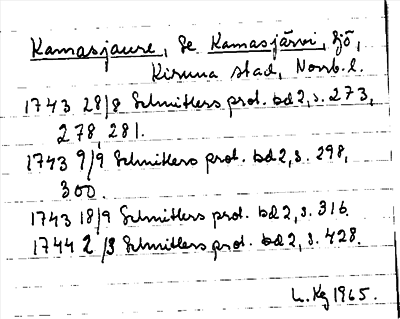 Kamasjaure, Se Kamasjärvi, sjö,
Kiruna stad, Norrb. l.
1743 28/8 Schnitlers prot. bd 2, s. 273,
278, 281.
1743 9/9 Schnitlers prot. bd 2, s. 298,
300.
1743 18/9 Schnitlers prot. bd 2, s. 316.
1744 2/3 Schnitlers prot. bd 2, s. 428.
1965.